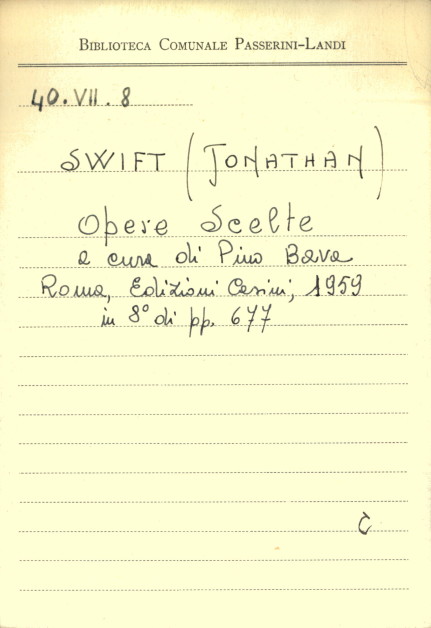 BIBLIOTECA COMUNALE PASSERINI-LANDI
40.VII.8
SWIFT (JONATHAN)
Opere Scelte
a cura di Pino Bava
Roma, Edizioni Casini, 1959
in 8° di pp. 677